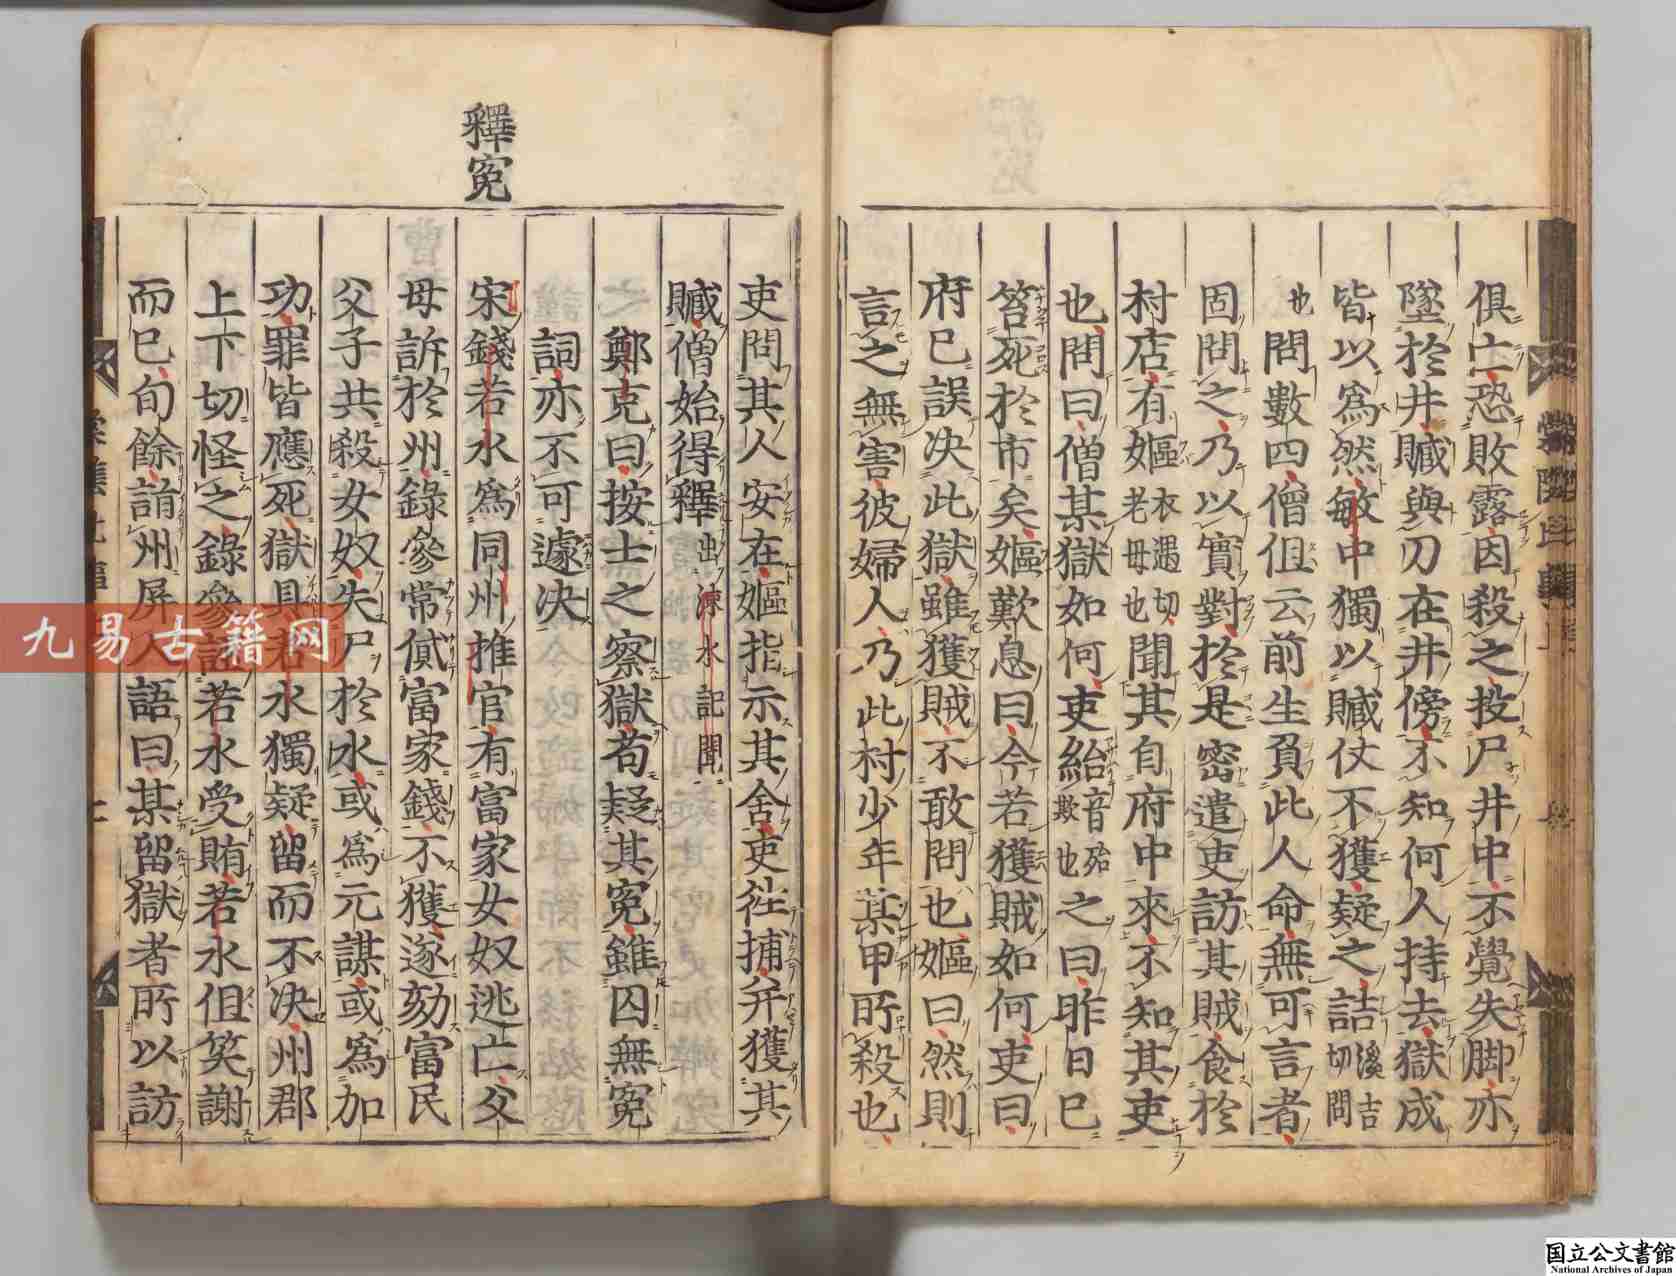 俱亡恐敗露因殺之投尸井中不覺失脚亦
墜於井贓與刀在井傍不知何人持去獄成
皆以爲然敏中獨以贓仗不獲疑之詰溪吉切問
也問數四僧但云前生負此人命無可言者
固問之乃以實對於是密遣吏訪其賊食於
村店有嫗衣遇切老母也聞其自府中來不知其吏
也問曰僧某獄如何吏紿音殆欺也之曰昨日已
笞死於市矣嫗歎息曰今若獲賊如何吏曰
府已誤决此獄雖獲賊不敢問也嫗曰然則
言之無害彼婦人乃此村少年某甲所殺也
釋寃
吏問其人安在嫗指示其舍吏徃捕并獲其
贓僧始得釋出涑水記聞
鄭克曰按士之察獄苟疑其寃雖囚無寃
詞亦不可遽决
宋錢若水爲同州推官有富家女奴逃亡父
母訴於州錄參常貸富家錢不獲遂劾富民
父子共殺女奴失尸於水或爲元謀或爲加
功罪皆應死獄具若水獨疑留而不决州郡
上下切怪之錄參詬若水受賄若水但笑謝
而已旬餘詣州屏人語曰某留獄者所以訪
棠陰比事
九易古籍网
国立公文書館
National Archives of Japan